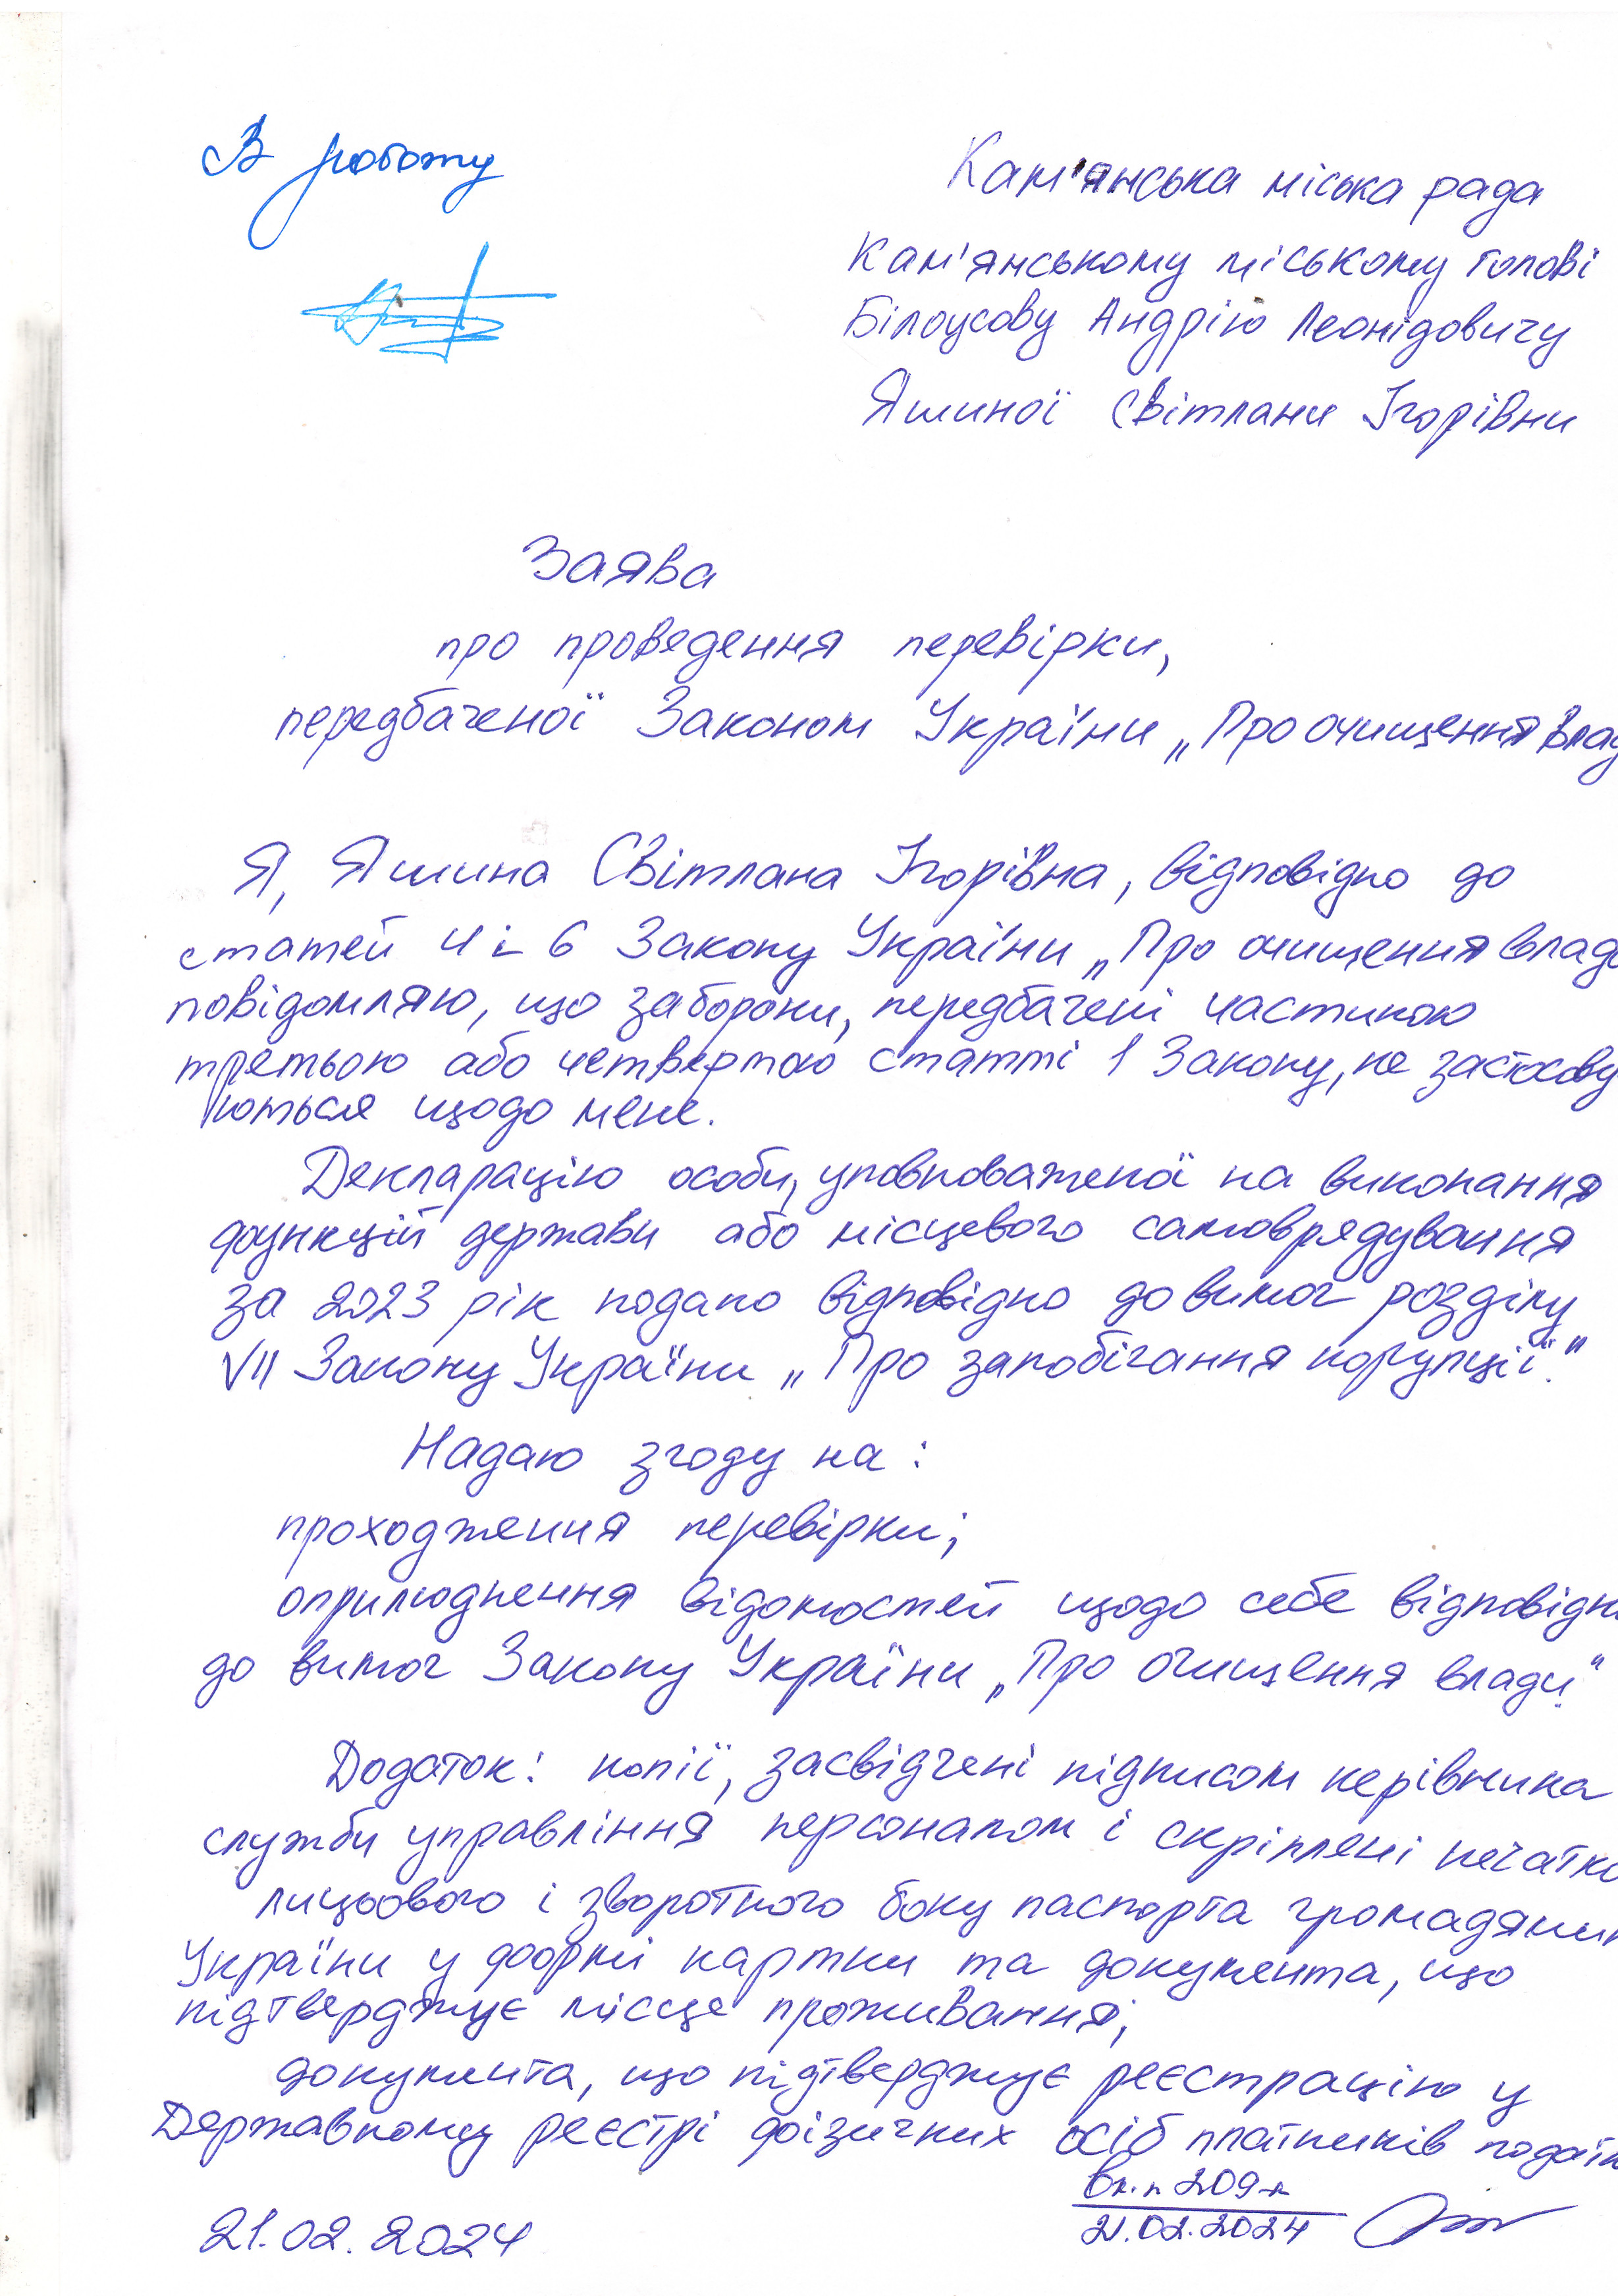 В роботу
Кам'янська міська рада
Кам'янському міському голові
Білоусову Андрію Леонідовичу
Яшиної Світлани Ігорівни
Заява
про проведення перевірки,
передбаченої Законом України „Про очищення влад
Я, Яшина Світлана Ігорівна, відповідно до
статей 4 і 6 Закону України „Про очищення влад
повідомляю, що заборони, передбачені частиною
третьою або четвертою статті 1 Закону, не застосову
ються щодо мене.
Декларацію особи, уповноваженої на виконання
функцій держави або місцевого самоврядування
за 2023 рік подано відповідно до вимог розділу
VII Закону України „Про запобігання корупції".
Надаю згоду на:
проходження перевірки;
оприлюднення відомостей щодо себе відповідн
до вимог Закону України „Про очищення влади".
Додаток: копії, засвідчені підписом керівника
служби управління персоналом і скріплені печатко
лицьового і зворотного боку паспорта громадянин
України у формі картки та документа, що
підтверджує місце проживання;
документа, що підтверджує реєстрацію у
Державному реєстрі фізичних осіб платників податк
21.02.2024
21.02.2024